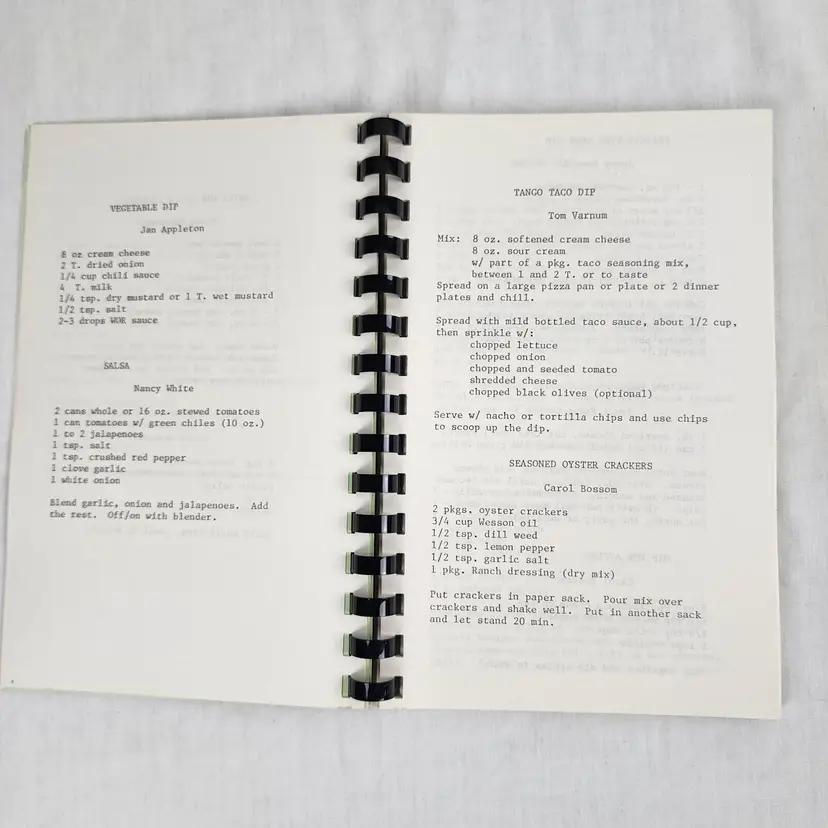 VEGETABLE DIP
Jan Appleton
8 oz cream cheese
2 T. dried onion
1/4 cup chili sauce
4 T. milk
1/4 tsp. dry mustard or 1 T. wet mustard
1/2 tsp. salt
2-3 drops WOR sauce
SALSA
Nancy White
2 cans whole or 16 oz. stewed tomatoes
1 can tomatoes w/ green chiles (10 oz.)
1 to 2 jalapenoes
1 tsp. salt
1 tsp. crushed red pepper
1 clove garlic
1 white onion
Blend garlic, onion and jalapenoes. Add
the rest. Off/on with blender.
TANGO TACO DIP
Tom Varnum
Mix: 8 oz. softened cream cheese
8 oz. sour cream
w/ part of a pkg. taco seasoning mix,
between 1 and 2 T. or to taste
Spread on a large pizza pan or plate or 2 dinner
plates and chill.
Spread with mild bottled taco sauce, about 1/2 cup,
then sprinkle w/:
chopped lettuce
chopped onion
chopped and seeded tomato
shredded cheese
chopped black olives (optional)
Serve w/ nacho or tortilla chips and use chips
to scoop up the dip.
SEASONED OYSTER CRACKERS
Carol Bossom
2 pkgs. oyster crackers
3/4 cup Wesson oil
1/2 tsp. dill weed
1/2 tsp. lemon pepper
1/2 tsp. garlic salt
1 pkg. Ranch dressing (dry mix)
Put crackers in paper sack. Pour mix over
crackers and shake well. Put in another sack
and let stand 20 min.